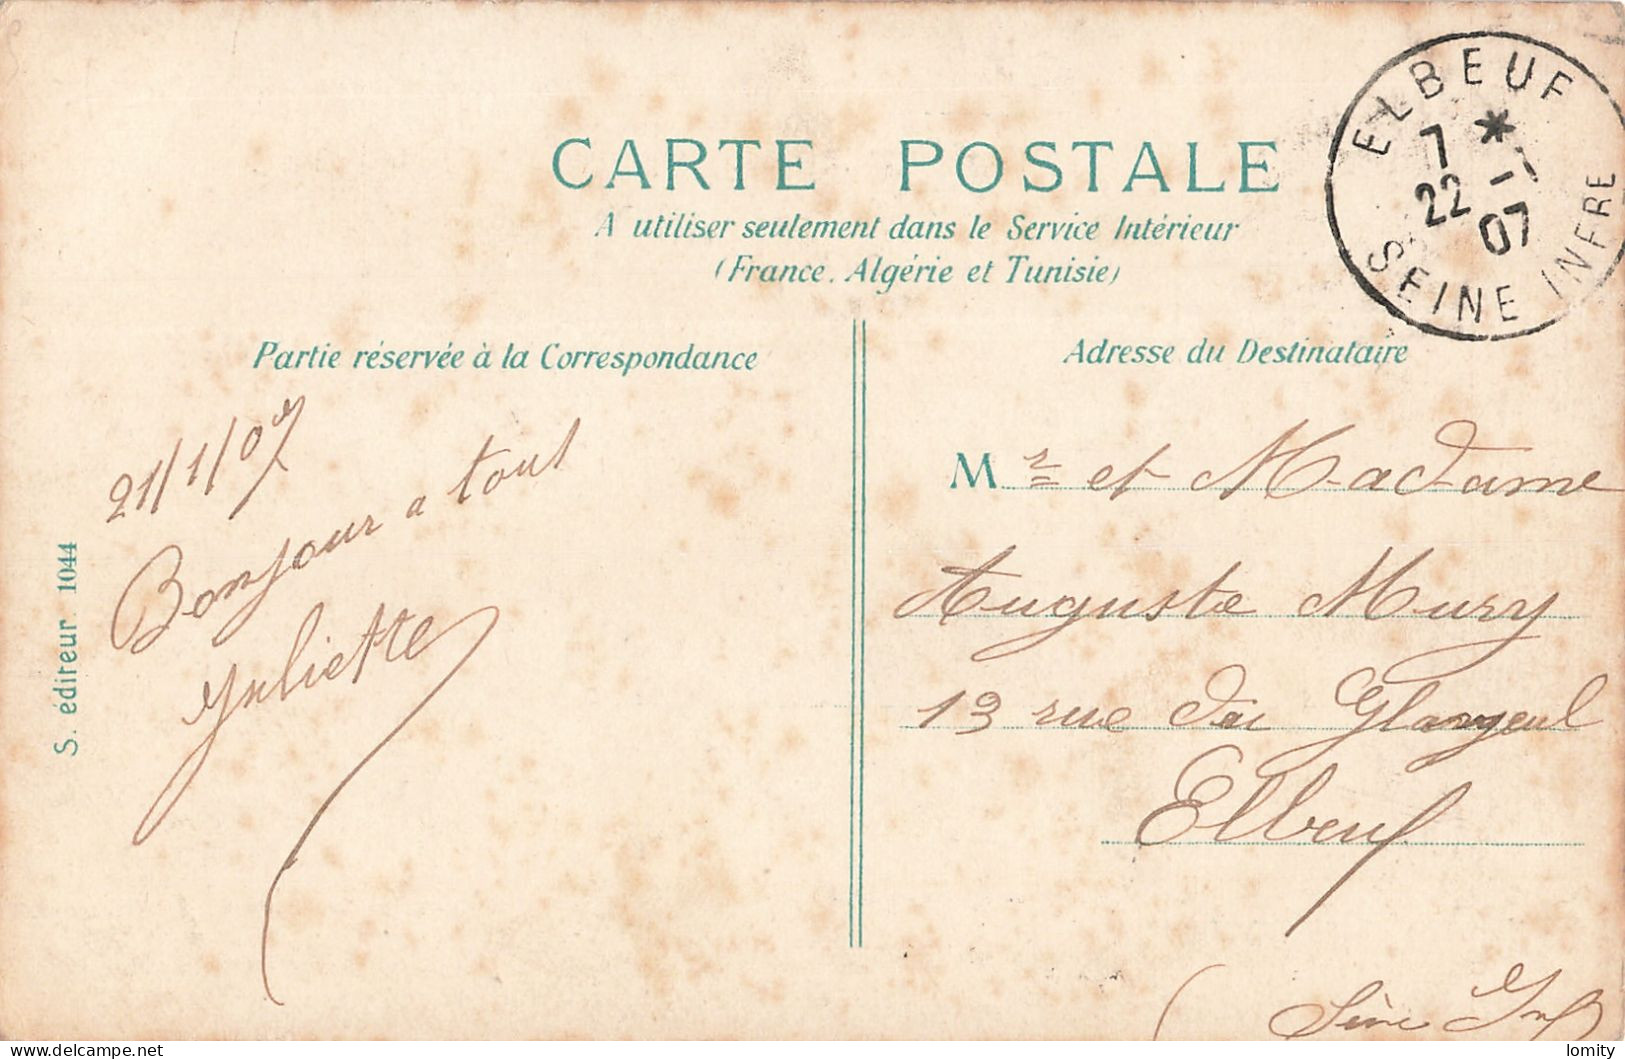 CARTE POSTALE
A utiliser seulement dans le Service Intérieur
(France, Algérie et Tunisie)
ELBEUF
7 *
22 -1
07
SEINE INFRE
Partie réservée à la Correspondance
Adresse du Destinataire
21/1/07
Bonjour a tous
Juliette
S. éditeur 1044
Mr et Madame
Auguste Mury
13 rue du Glayeul
Elbeuf
Seine Inf
delcampe.net
lomity